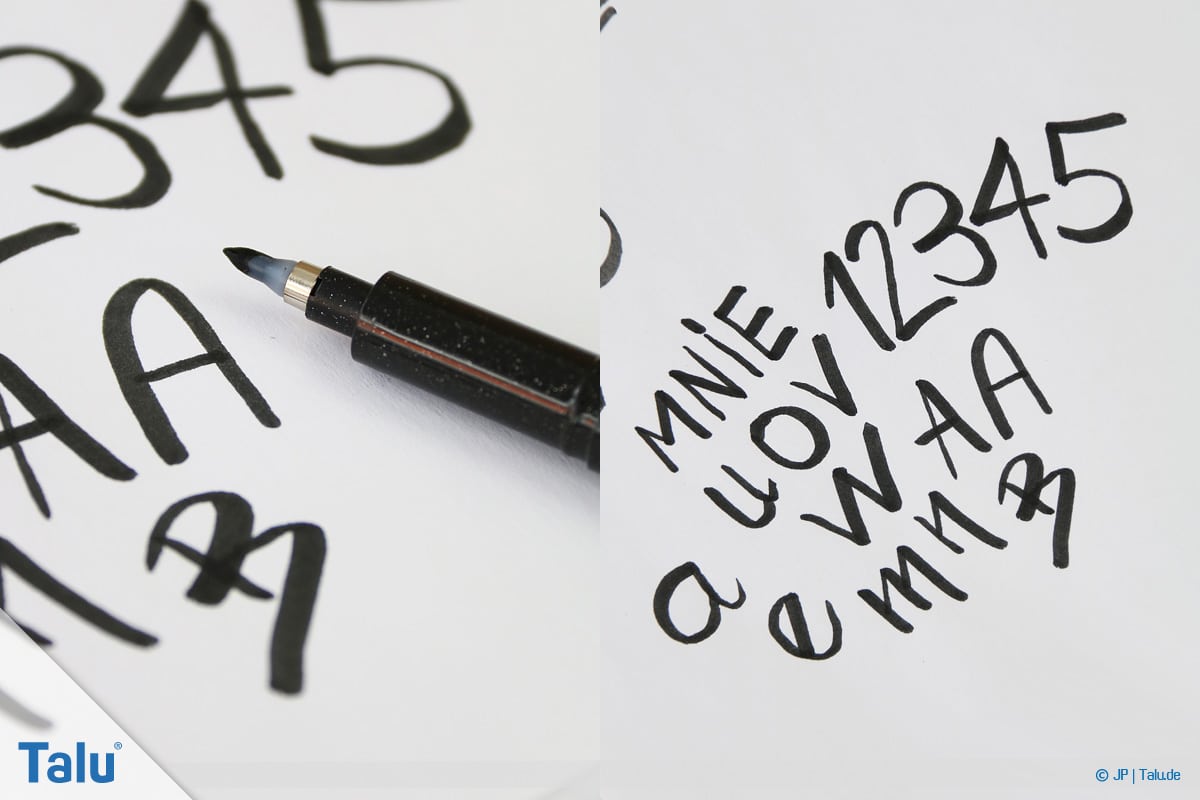 345
A A
Talu®
12345
MNiE
uov
W AA
a e m n
© JP | Talu.de